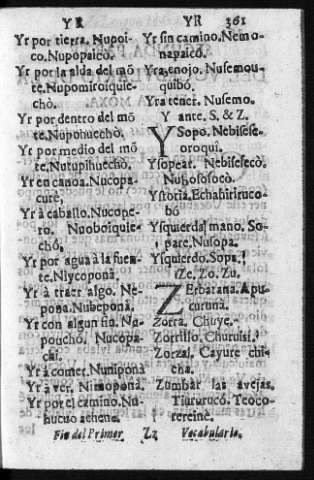 YR
YR 361
Yr por tierra. Nupoi-
co. Nupopaico.
Yr por la alda del mõ
te. Nupomiroiquie-
chò.
Yr por dentro del mõ
te. Nupohuechò.
Yr por medio del mõ
te. Nutupihuechò,
Yr en canoa. Nucopa-
curè,
Yr à caballo. Nucope-
ro. Nuoboiquie-
chò,
Yr por agua à la fuen
te. Nlycoponà.
Yr à traer algo. Ne-
pona. Nubeponà.
Yr con algun fin. Nu-
pouchò. Nucopa-
cai.
Yr à comer. Nuniponà
Yr à ver, Nimoponà.
Yr por el camino. Nu-
hucuo achene.
Yr sin camino. Nemo-
napaicò.
Yra, enojo. Nusemou-
quibò.
Yra tener. Nusemo.
Y ante. S, & Z.
YSopo. Nebisese-
oroqui.
Ysopear. Nebisesecò.
Nubososocò.
Ystoria. Echahiriruco-
bò
Ysquierda mano, So-
pare. Nusopa.
Ysquierdo. Sopa.
Ze, Zo. Zu,
ZErbatana. Apu-
curuna.
Zorra, Chuye.
Zorrillo. Churuisi.
Zorzal, Cayure chi-
cha.
Zumbar las avejas.
Tiururucò. Teoco-
rereinè.
Fin del Primer Zz Vocabulario.